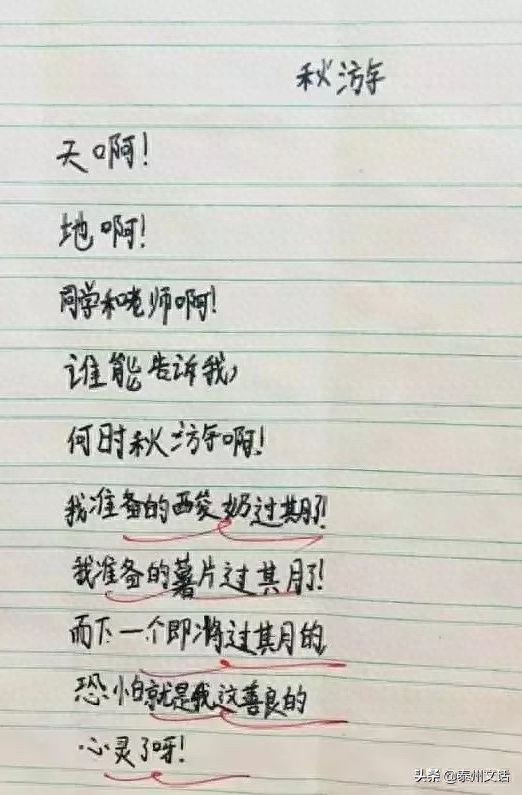 秋游
天啊!
地啊!
同学和老师啊!
谁能告诉我,
何时秋游啊!
我准备的两袋奶过期了!
我准备的薯片过期了!
而下一个即将过期的
恐怕就是我这善良的
心灵了呀!
头条 @泰州文话